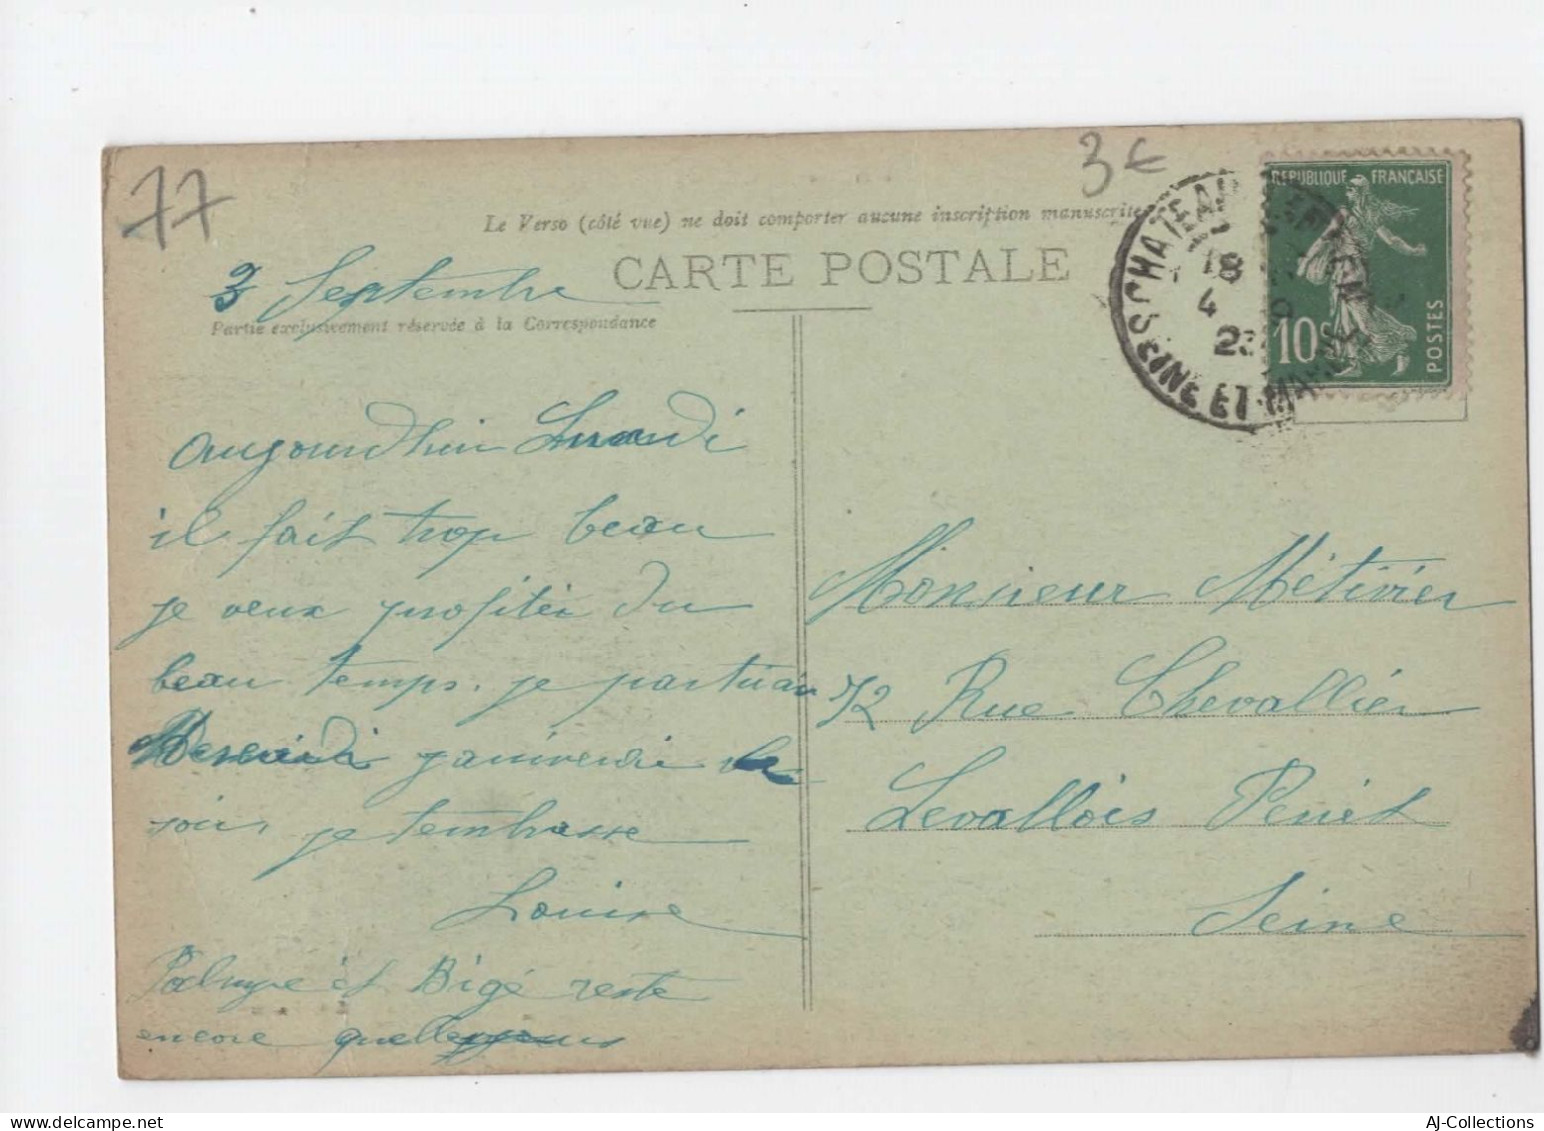 77
3€
Le Verso (côté vue) ne doit comporter aucune inscription manuscrite
CARTE POSTALE
3 Septembre
Partie exclusivement réservée à la Correspondance
REPUBLIQUE FRANÇAISE
10c
POSTES
CHATEAU
18
4
23
SEINE ET MARNE
aujourdhui Lundi
il fait trop beau
je veux profiter du
beau temps. je partirai
Mercredi j'arriverai le
soir, je tembrasse
Louise
Palmyre et Bigé reste
encore quelle
Monsieur Métivier
72 Rue Chevallier
Levallois Perret
Seine
AJ-Collections